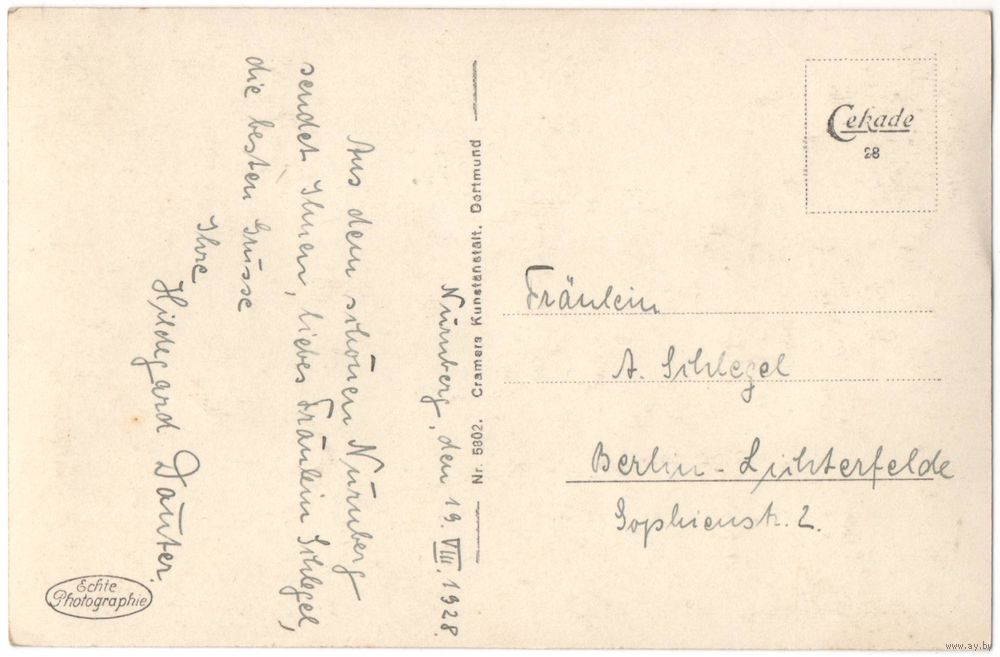 Nürnberg, den 19. VIII. 1928.
Aus dem schönen Nürnberg
sendet Ihnen, liebes Fräulein Schlegel,
die besten Grüsse
Ihre
Hildegard Dauter.
Nr. 5802. Cramers Kunstanstalt, Dortmund
Cekade
28
Fräulein
A. Schlegel
Berlin-Lichterfelde
Sophienstr. 2.
Echte
Photographie
www.ay.by